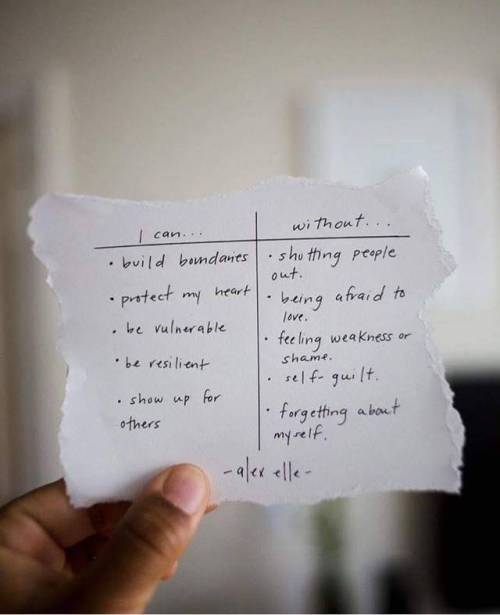 I can... without...
• build boundaries • shutting people
out.
• protect my heart • being afraid to
love.
• be vulnerable • feeling weakness or
shame.
• be resilient • self-guilt.
• show up for • forgetting about
others myself.
-alex elle-